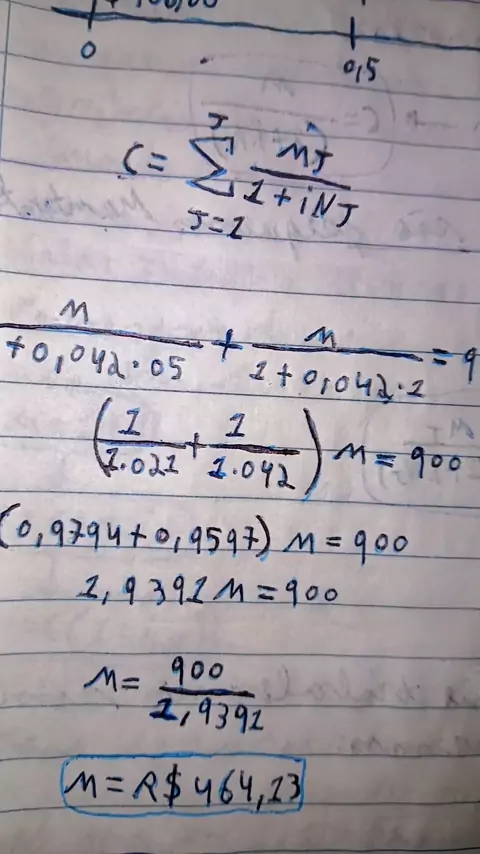 0 0,5
C = J Σ J=1 MJ / 1+iNJ
M / +0,042·05 + M / 1+0,042·1 = 9
(1 / 1.021 + 1 / 1.042) M = 900
(0,9794+0,9597) M = 900
1,9391 M = 900
M = 900 / 1,9391
M = R$ 464,13